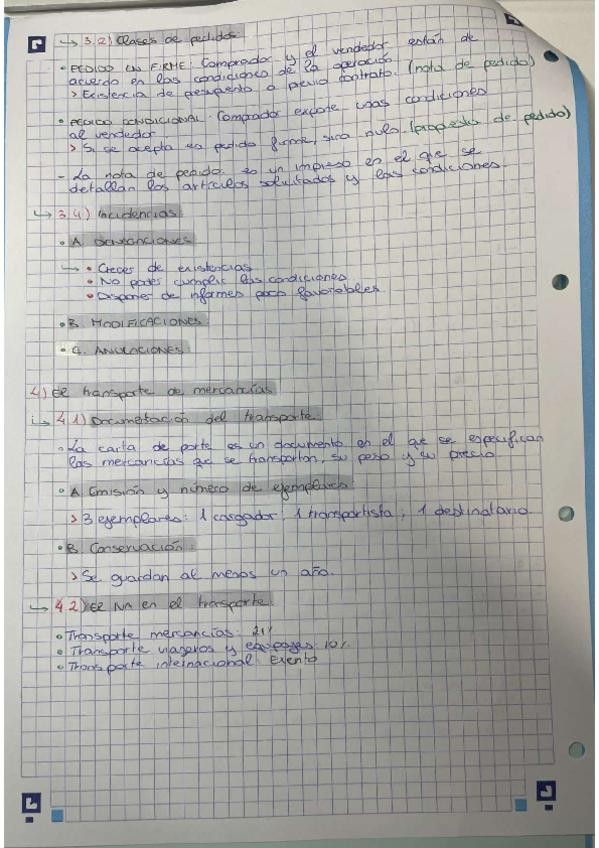 ↳ 3.2) Clases de pedidos
• PEDIDO EN FIRME: Comprador y el vendedor están de
acuerdo en las condiciones de la operación
> Existencia de presupuesto o previo contrato. (nota de pedido)
• PEDIDO CONDICIONAL: Comprador expone unas condiciones
al vendedor
> Si se acepta es pedido firme, sino nulo. (propuesta de pedido)
- La nota de pedido es un impreso en el que se
detallan los artículos solicitados y las condiciones.
↳ 3.4) Incidencias
• A. DENEGACIONES
→ • Creces de existencias
• No poder cumplir las condiciones
• Disponer de informes poco favorables
• B. MODIFICACIONES:
• C. ANULACIONES:
4) El transporte de mercancías
↳ 4.1) Documetación del transporte
• La carta de porte es un documento en el que se especifican
las mercancías que se transportan, su peso y su precio
• A Emisión y número de ejemplares:
> 3 ejemplares: 1 cargador, 1 transportista, 1 destinatario.
• B. Conservación:
> Se guardan al menos un año.
↳ 4.2) El IVA en el transporte
• Transporte mercancías: 21%
• Transporte viajeros y equipajes: 10%
• Transporte internacional: Exento